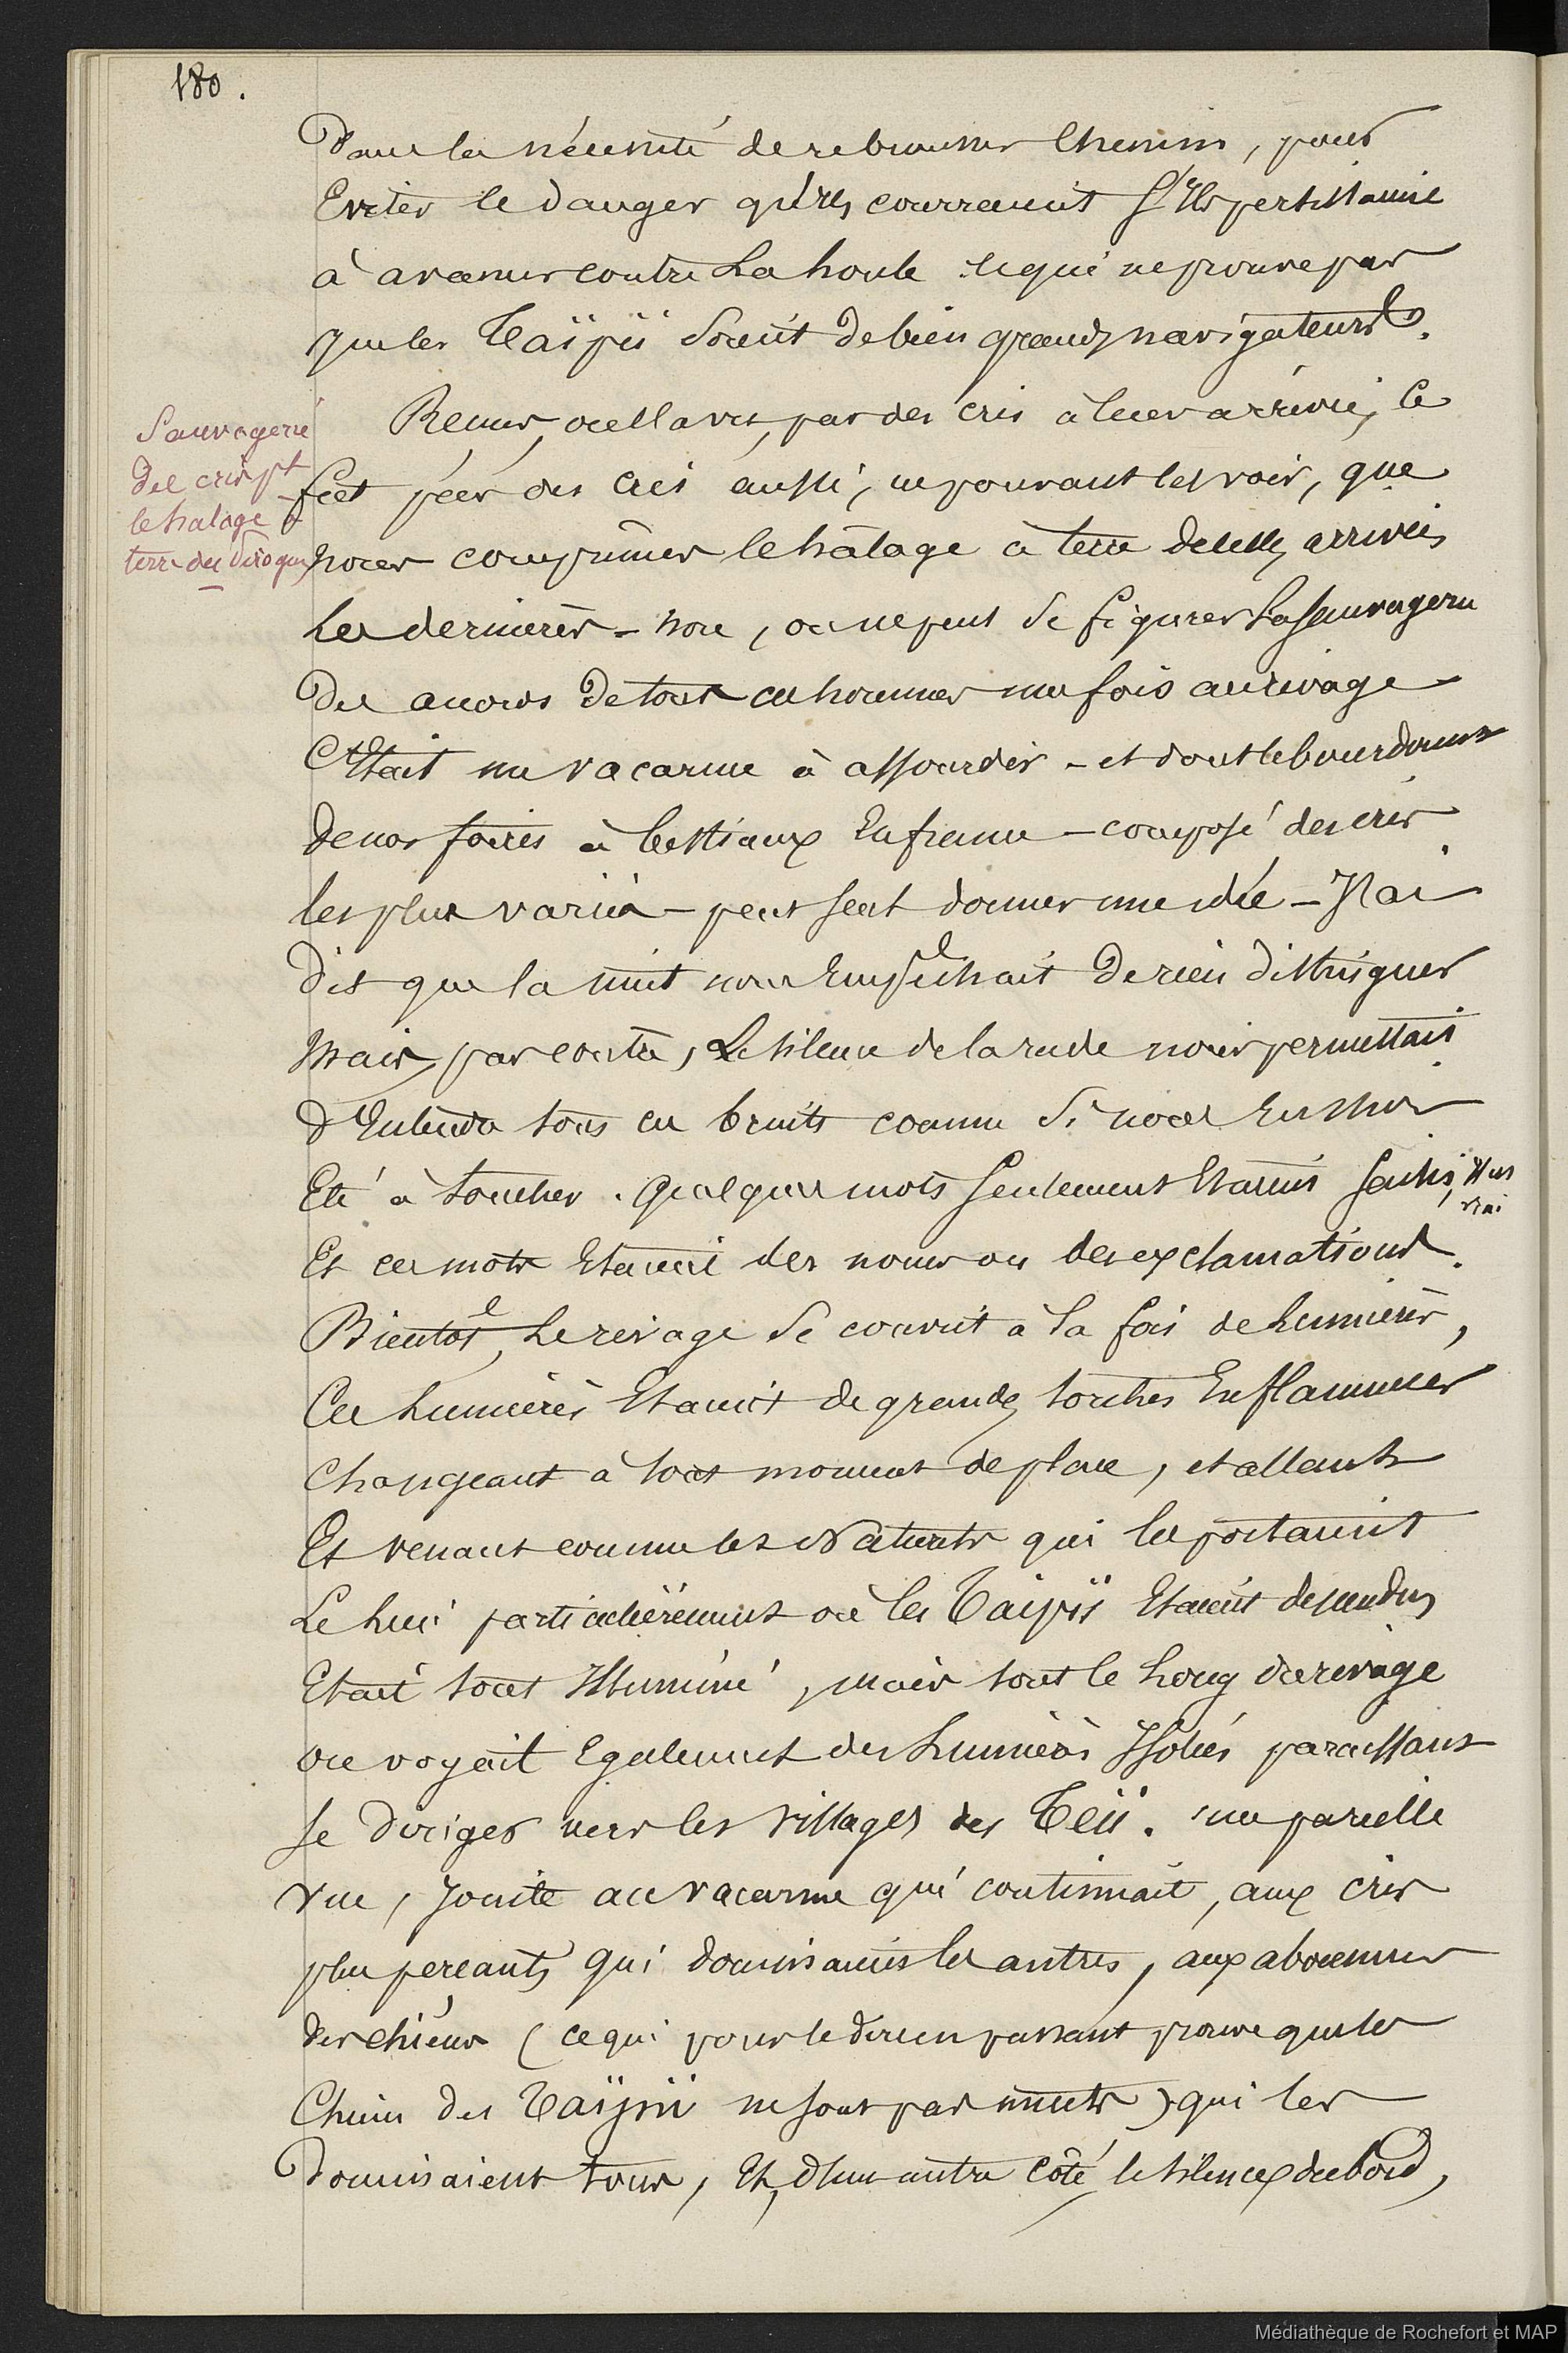 180.
Dans la nécessité de rebrousser Chemin, pour
Eviter le danger qu'ils courraient S'Ils persistaient
à avancer contre La houle ce qui ne prouve pas
que les Taïpii Soient de bien grands navigateurs.
Sauvagerie
des cris pt
le halage à
terre des Pirogues
Reçus, on l'a vu, par des cris à leur arrivée, ce
fut par des cris aussi, ne pouvant les voir, que
nous comprîmes le hâlage à terre de celles arrivées
Les dernières - non, on ne peut Se figurer La Sauvagerie
Des accords de tous ces hommes une fois au rivage
C'Etait un vacarme à assourdir - et dont le bourdonnement
de nos foires à bestiaux En france - composé des cris
les plus variés - peut Seul donner une idée - J'ai
dit que la nuit nous Empêchait De rien distinguer
Mais, par contre, Le Silence de la rade nous permettait
d'Entendre tous ces bruits comme Si nous Eussions
Eté à toucher. Quelques mots Seulement Etaient Saisis, Il est
vrai
Et ces mots Etaient des noms ou des exclamations.
Bientôt, Le rivage Se couvrit à la fois de Lumières,
Ces Lumières Etaient de grandes torches Enflammées
Changeant à tout moment de place, et allant
Et venant comme les Naturels qui les portaient
Le lieu particulièrement où les Taïpii Etaient descendus
Etait tout Illuminé, mais tout le Long du rivage
on voyait Egalement des Lumières Isolées paraissant
Se diriger vers les Villages des Teii. une pareille
vue, Jointe au vacarme qui continuait, aux cris
plus perçants qui dominaient les autres, aux aboiements
des chiens (ce qui pour le dire en passant prouve que les
Chiens des Taïpii ne sont pas muets) qui les
Dominaient tous, Et, d'un autre côté, le Silence du bord,
Médiathèque de Rochefort et MAP